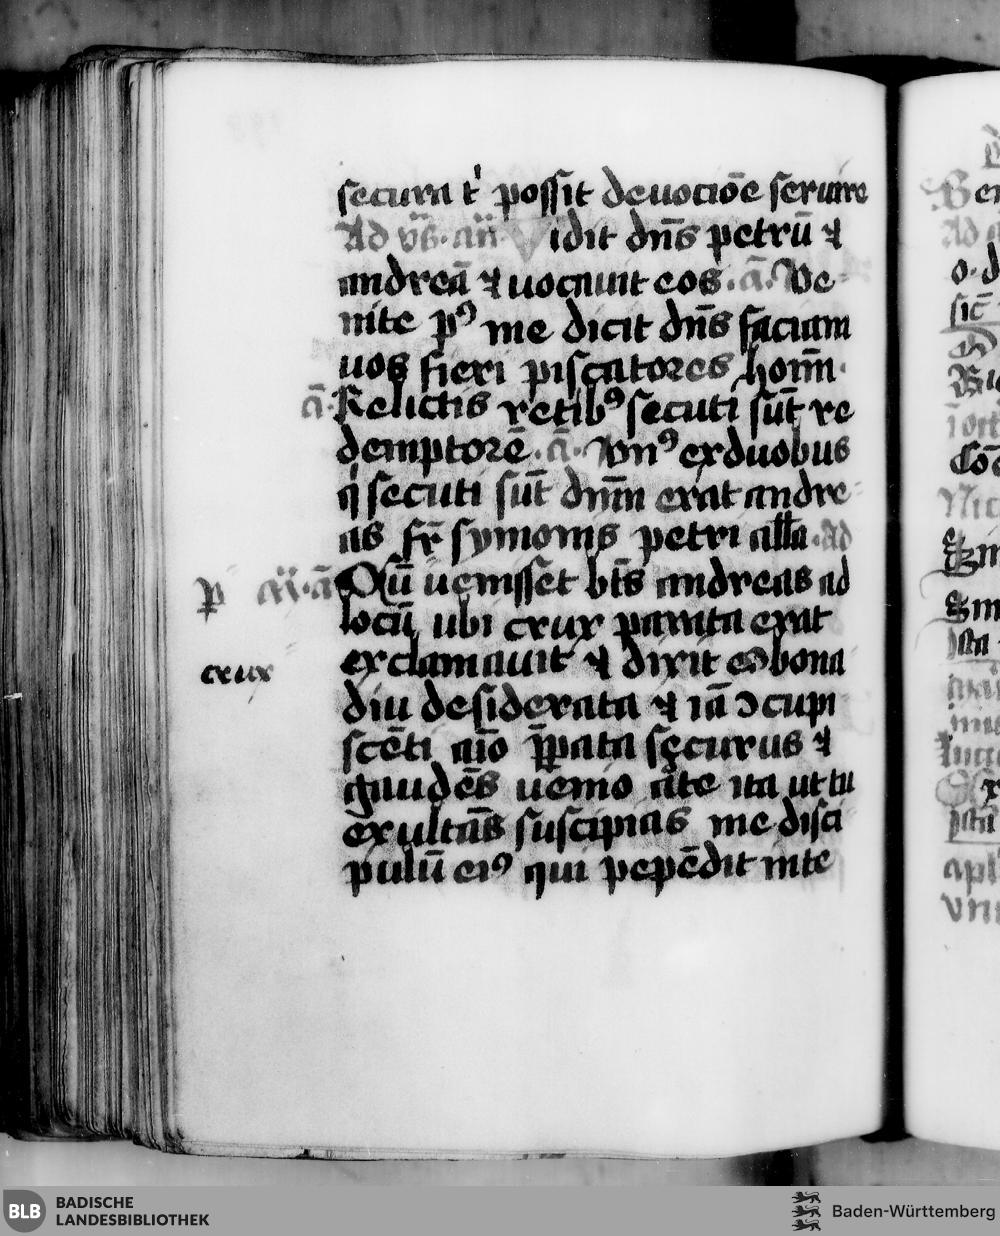 secura t' possit deuociōe seruire
Ad vs̄. añ. Vidit dn̄s petrū ⁊
andreā ⁊ uocauit eos. ā. Ve-
nite pꝰ me dicit dn̄s faciam
uos fieri piscatores hoīm.
ā. Relictis retibꝰ secuti sūt re
demptorē. ā. Vnꝰ ex duobus
q̇ secuti sūt dn̄m erat andre-
as fr̄ symonis petri alla. Ad
p̄ ā. Cū uenisset bt̄s andreas ad
locū ubi crux parata erat
exclamauit ⁊ dixit o bona
crux
diu desiderata ⁊ iā ɔcupi
scēti aīo p̄pata securus ⁊
gaudēs uenio ad te ita ut tu
exultās suscipias me disci
pulū eiꝰ qui pepēdit in te
BLB
BADISCHE
LANDESBIBLIOTHEK
Baden-Württemberg